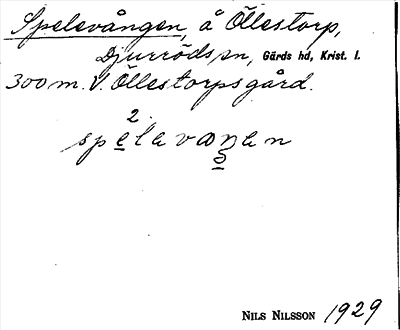 Spelevången, å Öllestorp,
Djurröds sn, Gärds hd, Krist. l.
300 m. V. Öllestorpsgård.
2
spelavaŋen
NILS NILSSON 1929